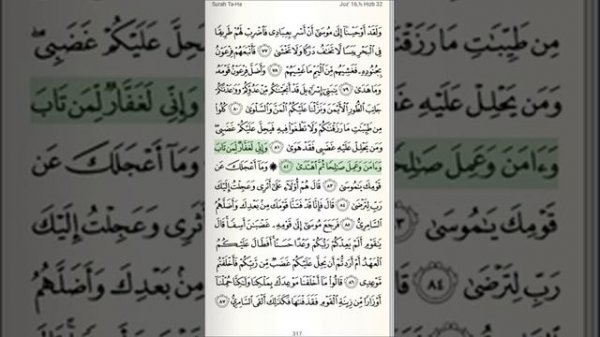 Surah Ta-Ha
Juz' 16,½ Hizb 32
وَلَقَدْ أَوْحَيْنَآ إِلَىٰ مُوسَىٰٓ أَنْ أَسْرِ بِعِبَادِى فَٱضْرِبْ لَهُمْ طَرِيقًا
فِى ٱلْبَحْرِ يَبَسًا لَّا تَخَٰفُ دَرَكًا وَلَا تَخْشَىٰ ٧٧ فَأَتْبَعَهُمْ فِرْعَوْنُ
بِجُنُودِهِۦ فَغَشِيَهُم مِّنَ ٱلْيَمِّ مَا غَشِيَهُمْ ٧٨ وَأَضَلَّ فِرْعَوْنُ قَوْمَهُۥ
وَمَا هَدَىٰ ٧٩ يَٰبَنِىٓ إِسْرَٰٓءِيلَ قَدْ أَنجَيْنَٰكُم مِّنْ عَدُوِّكُمْ وَوَٰعَدْنَٰكُمْ
جَانِبَ ٱلطُّورِ ٱلْأَيْمَنَ وَنَزَّلْنَا عَلَيْكُمُ ٱلْمَنَّ وَٱلسَّلْوَىٰ ٨٠ كُلُوا۟
مِن طَيِّبَٰتِ مَا رَزَقْنَٰكُمْ وَلَا تَطْغَوْا۟ فِيهِ فَيَحِلَّ عَلَيْكُمْ غَضَبِى
وَمَن يَحْلِلْ عَلَيْهِ غَضَبِى فَقَدْ هَوَىٰ ٨١ وَإِنِّى لَغَفَّارٌ لِّمَن تَابَ
وَءَامَنَ وَعَمِلَ صَٰلِحًا ثُمَّ ٱهْتَدَىٰ ٨٢ ۞ وَمَآ أَعْجَلَكَ عَن
قَوْمِكَ يَٰمُوسَىٰ ٨٣ قَالَ هُمْ أُو۟لَآءِ عَلَىٰٓ أَثَرِى وَعَجِلْتُ إِلَيْكَ
رَبِّ لِتَرْضَىٰ ٨٤ قَالَ فَإِنَّا قَدْ فَتَنَّا قَوْمَكَ مِنۢ بَعْدِكَ وَأَضَلَّهُمُ
ٱلسَّامِرِىُّ ٨٥ فَرَجَعَ مُوسَىٰٓ إِلَىٰ قَوْمِهِۦ غَضْبَٰنَ أَسِفًا قَالَ
يَٰقَوْمِ أَلَمْ يَعِدْكُمْ رَبُّكُمْ وَعْدًا حَسَنًا أَفَطَالَ عَلَيْكُمُ
ٱلْعَهْدُ أَمْ أَرَدتُّمْ أَن يَحِلَّ عَلَيْكُمْ غَضَبٌ مِّن رَّبِّكُمْ فَأَخْلَفْتُم
مَّوْعِدِى ٨٦ قَالُوا۟ مَآ أَخْلَفْنَا مَوْعِدَكَ بِمَلْكِنَا وَلَٰكِنَّا حُمِّلْنَآ
أَوْزَارًا مِّن زِينَةِ ٱلْقَوْمِ فَقَذَفْنَٰهَا فَكَذَٰلِكَ أَلْقَى ٱلسَّامِرِىُّ ٨٧
317